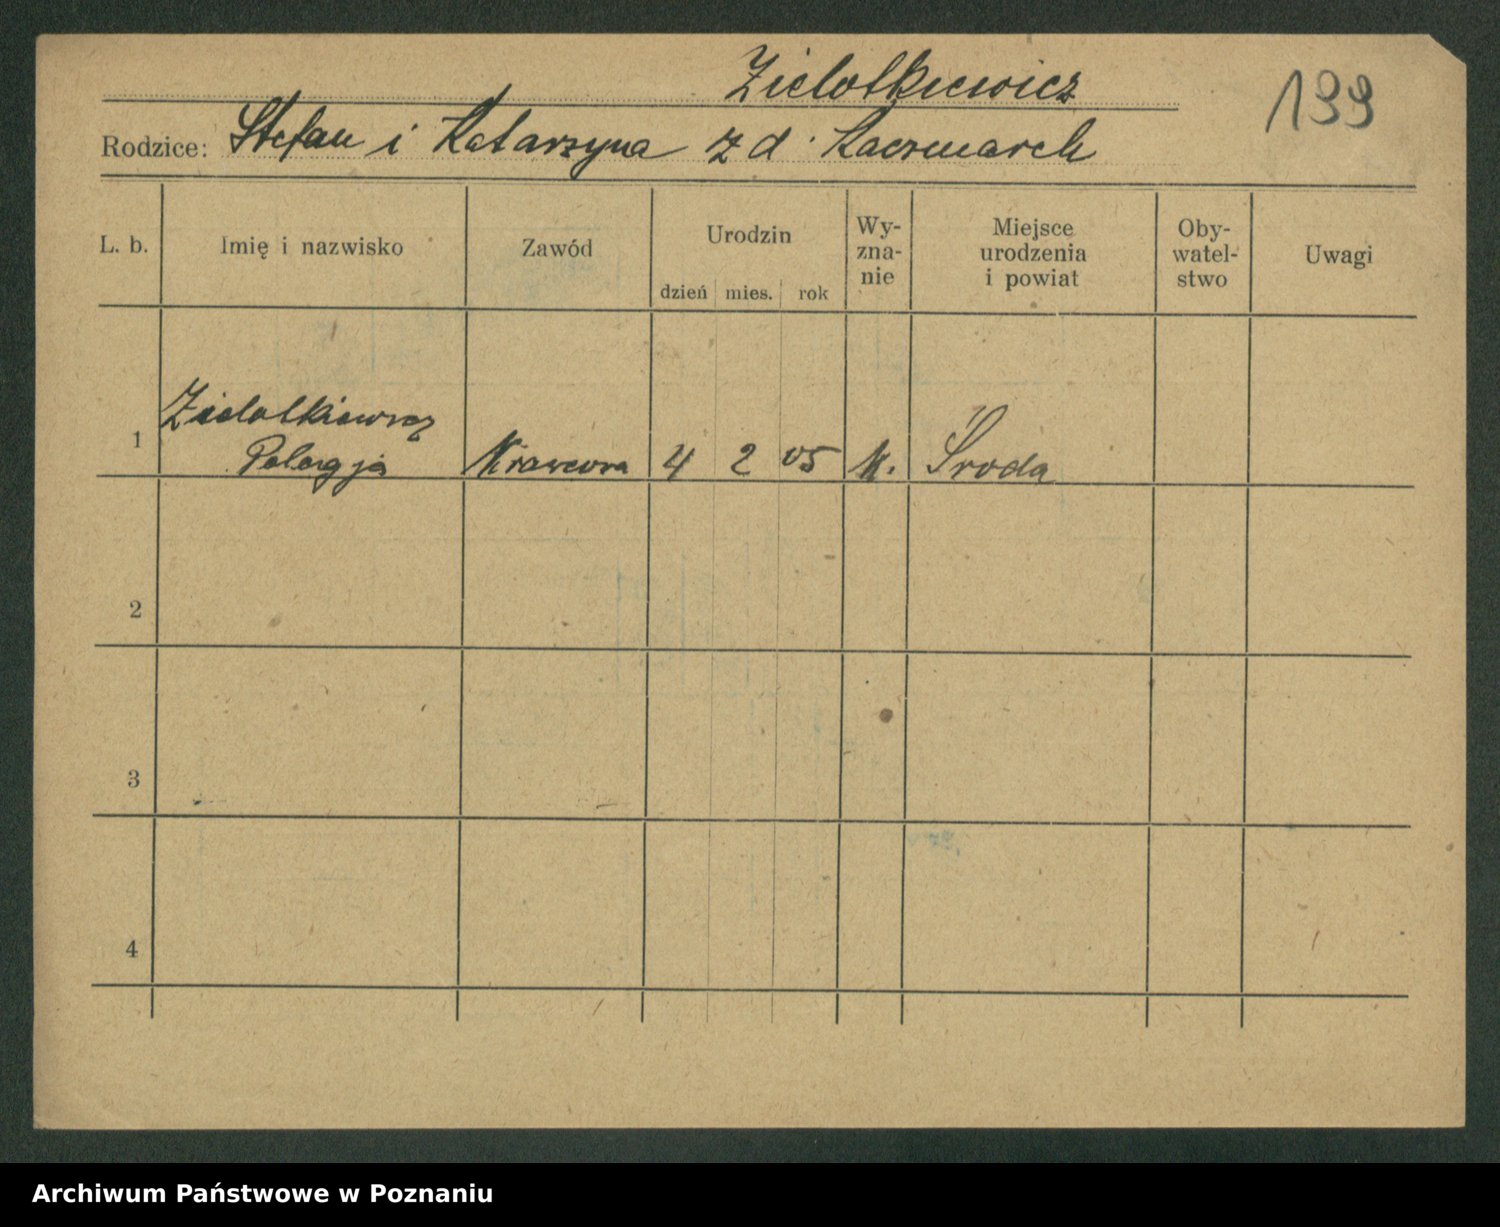 Zielotkiewicz
199
Rodzice: Stefan i Katarzyna z d. Kaczmarek
L. b.
Imię i nazwisko
Zawód
Urodzin
dzień mies. rok
Wy-
zna-
nie
Miejsce
urodzenia
i powiat
Oby-
watel-
stwo
Uwagi
Zielotkiewicz
1 Pelagja Krawcowa 4 2 05 k. Środa
2
3
4
Archiwum Państwowe w Poznaniu